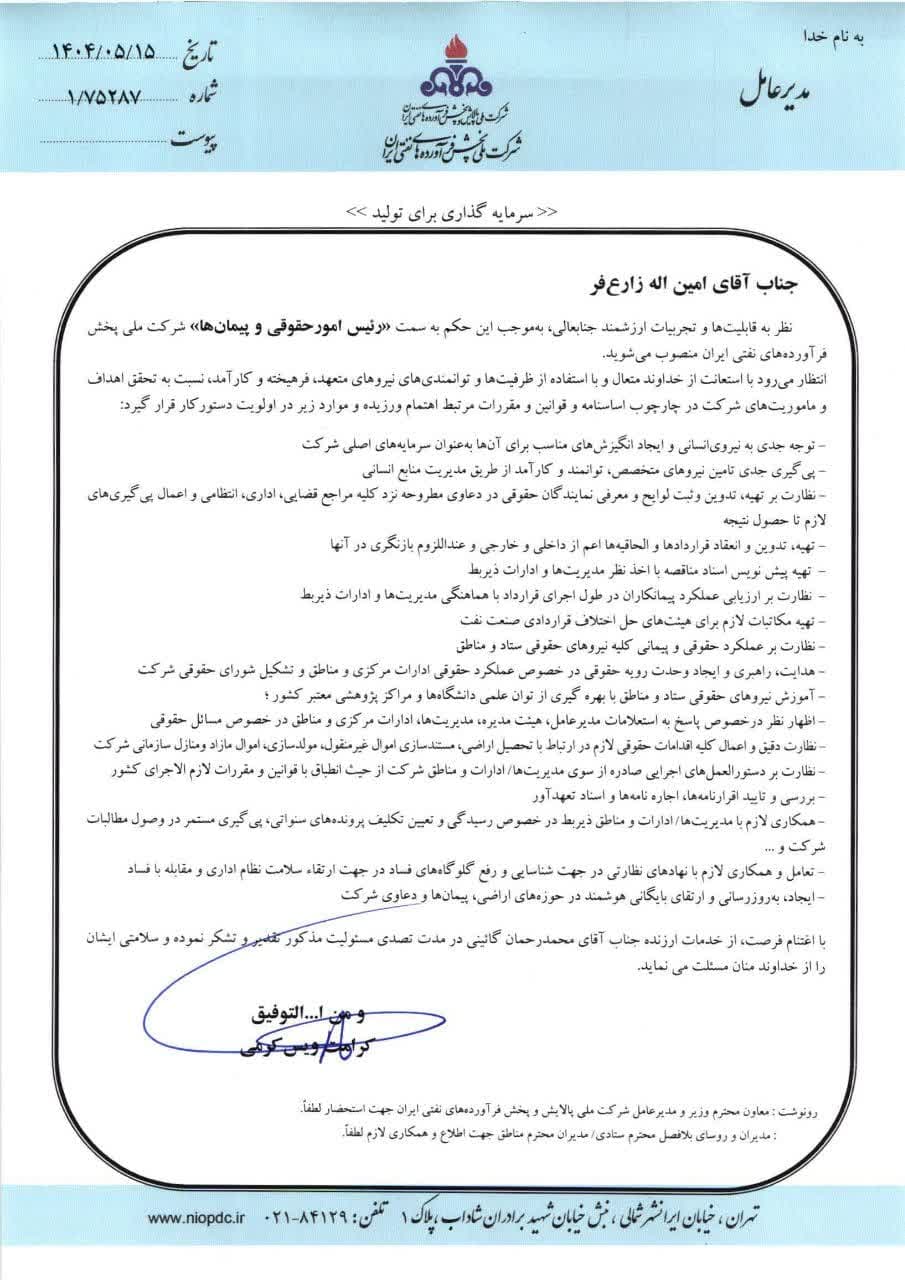 به نام خدا
مدیرعامل
شرکت ملی پالایش و پخش فرآورده‌های نفتی ایران
شرکت ملی پخش فرآورده‌های نفتی ایران
تاریخ ۱۴۰۴/۰۵/۱۵
شماره ۱/۷۵۲۸۷
پیوست
<< سرمایه گذاری برای تولید >>
جناب آقای امین اله زارع‌فر
نظر به قابلیت‌ها و تجربیات ارزشمند جنابعالی، به‌موجب این حکم به سمت «رئیس امورحقوقی و پیمان‌ها» شرکت ملی پخش
فرآورده‌های نفتی ایران منصوب می‌شوید.
انتظار می‌رود با استعانت از خداوند متعال و با استفاده از ظرفیت‌ها و توانمندی‌های نیروهای متعهد، فرهیخته و کارآمد، نسبت به تحقق اهداف
و ماموریت‌های شرکت در چارچوب اساسنامه و قوانین و مقررات مرتبط اهتمام ورزیده و موارد زیر در اولویت دستورکار قرار گیرد:
- توجه جدی به نیروی‌انسانی و ایجاد انگیزش‌های مناسب برای آن‌ها به‌عنوان سرمایه‌های اصلی شرکت
- پی‌گیری جدی تامین نیروهای متخصص، توانمند و کارآمد از طریق مدیریت منابع انسانی
- نظارت بر تهیه، تدوین وثبت لوایح و معرفی نمایندگان حقوقی در دعاوی مطروحه نزد کلیه مراجع قضایی، اداری، انتظامی و اعمال پی‌گیری‌های
لازم تا حصول نتیجه
- تهیه، تدوین و انعقاد قراردادها و الحاقیه‌ها اعم از داخلی و خارجی و عنداللزوم بازنگری در آنها
- تهیه پیش نویس اسناد مناقصه با اخذ نظر مدیریت‌ها و ادارات ذیربط
- نظارت بر ارزیابی عملکرد پیمانکاران در طول اجرای قرارداد با هماهنگی مدیریت‌ها و ادارات ذیربط
- تهیه مکاتبات لازم برای هیئت‌های حل اختلاف قراردادی صنعت نفت
- نظارت بر عملکرد حقوقی و پیمانی کلیه نیروهای حقوقی ستاد و مناطق
- هدایت، راهبری و ایجاد وحدت رویه حقوقی در خصوص عملکرد حقوقی ادارات مرکزی و مناطق و تشکیل شورای حقوقی شرکت
- آموزش نیروهای حقوقی ستاد و مناطق با بهره گیری از توان علمی دانشگاه‌ها و مراکز پژوهشی معتبر کشور ؛
- اظهار نظر درخصوص پاسخ به استعلامات مدیرعامل، هیئت مدیره، مدیریت‌ها، ادارات مرکزی و مناطق در خصوص مسائل حقوقی
- نظارت دقیق و اعمال کلیه اقدامات حقوقی لازم در ارتباط با تحصیل اراضی، مستندسازی اموال غیرمنقول، مولدسازی، اموال مازاد ومنازل سازمانی شرکت
- نظارت بر دستورالعمل‌های اجرایی صادره از سوی مدیریت‌ها/ ادارات و مناطق شرکت از حیث انطباق با قوانین و مقررات لازم الاجرای کشور
- بررسی و تایید اقرارنامه‌ها، اجاره نامه‌ها و اسناد تعهدآور
- همکاری لازم با مدیریت‌ها/ ادارات و مناطق ذیربط در خصوص رسیدگی و تعیین تکلیف پرونده‌های سنواتی، پی‌گیری مستمر در وصول مطالبات
شرکت و ...
- تعامل و همکاری لازم با نهادهای نظارتی در جهت شناسایی و رفع گلوگاه‌های فساد در جهت ارتقاء سلامت نظام اداری و مقابله با فساد
- ایجاد، به‌روزرسانی و ارتقای بایگانی هوشمند در حوزه‌های اراضی، پیمان‌ها و دعاوی شرکت
با اغتنام فرصت، از خدمات ارزنده جناب آقای محمدرحمان گائینی در مدت تصدی مسئولیت مذکور تقدیر و تشکر نموده و سلامتی ایشان
را از خداوند منان مسئلت می نماید.
و من ا...التوفیق
کرامت ویس‌کرمی
رونوشت : معاون محترم وزیر و مدیرعامل شرکت ملی پالایش و پخش فرآورده‌های نفتی ایران جهت استحضار لطفاً.
: مدیران و روسای بلافصل محترم ستادی/ مدیران محترم مناطق جهت اطلاع و همکاری لازم لطفاً.
تهران ، خیابان ایرانشهر شمالی ، نبش خیابان شهید برادران شاداب ، پلاک ۱ تلفن : ۸۴۱۲۹-۰۲۱ www.niopdc.ir